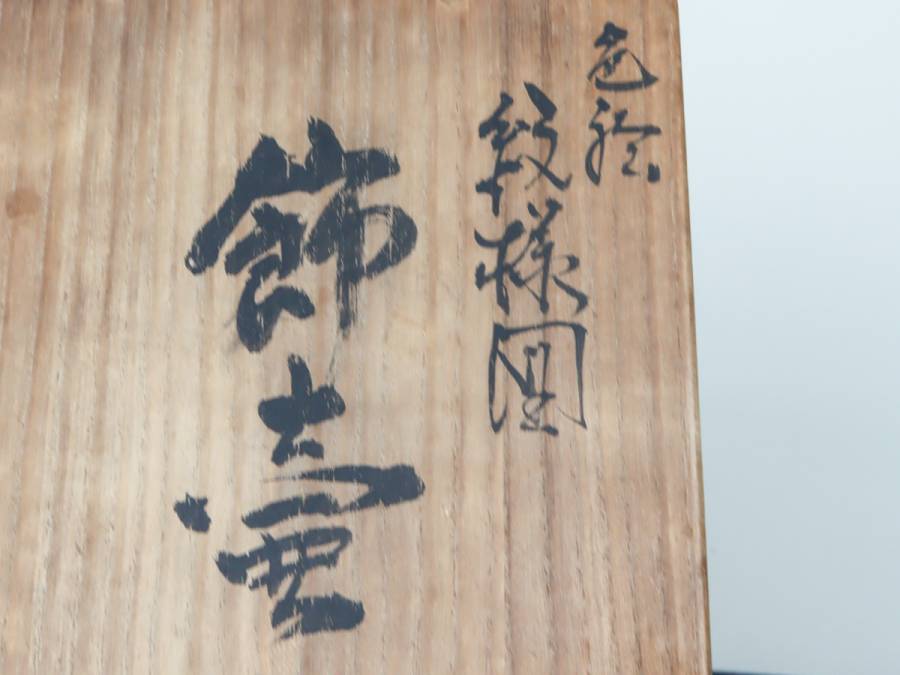 色絵
紋様図
飾壷